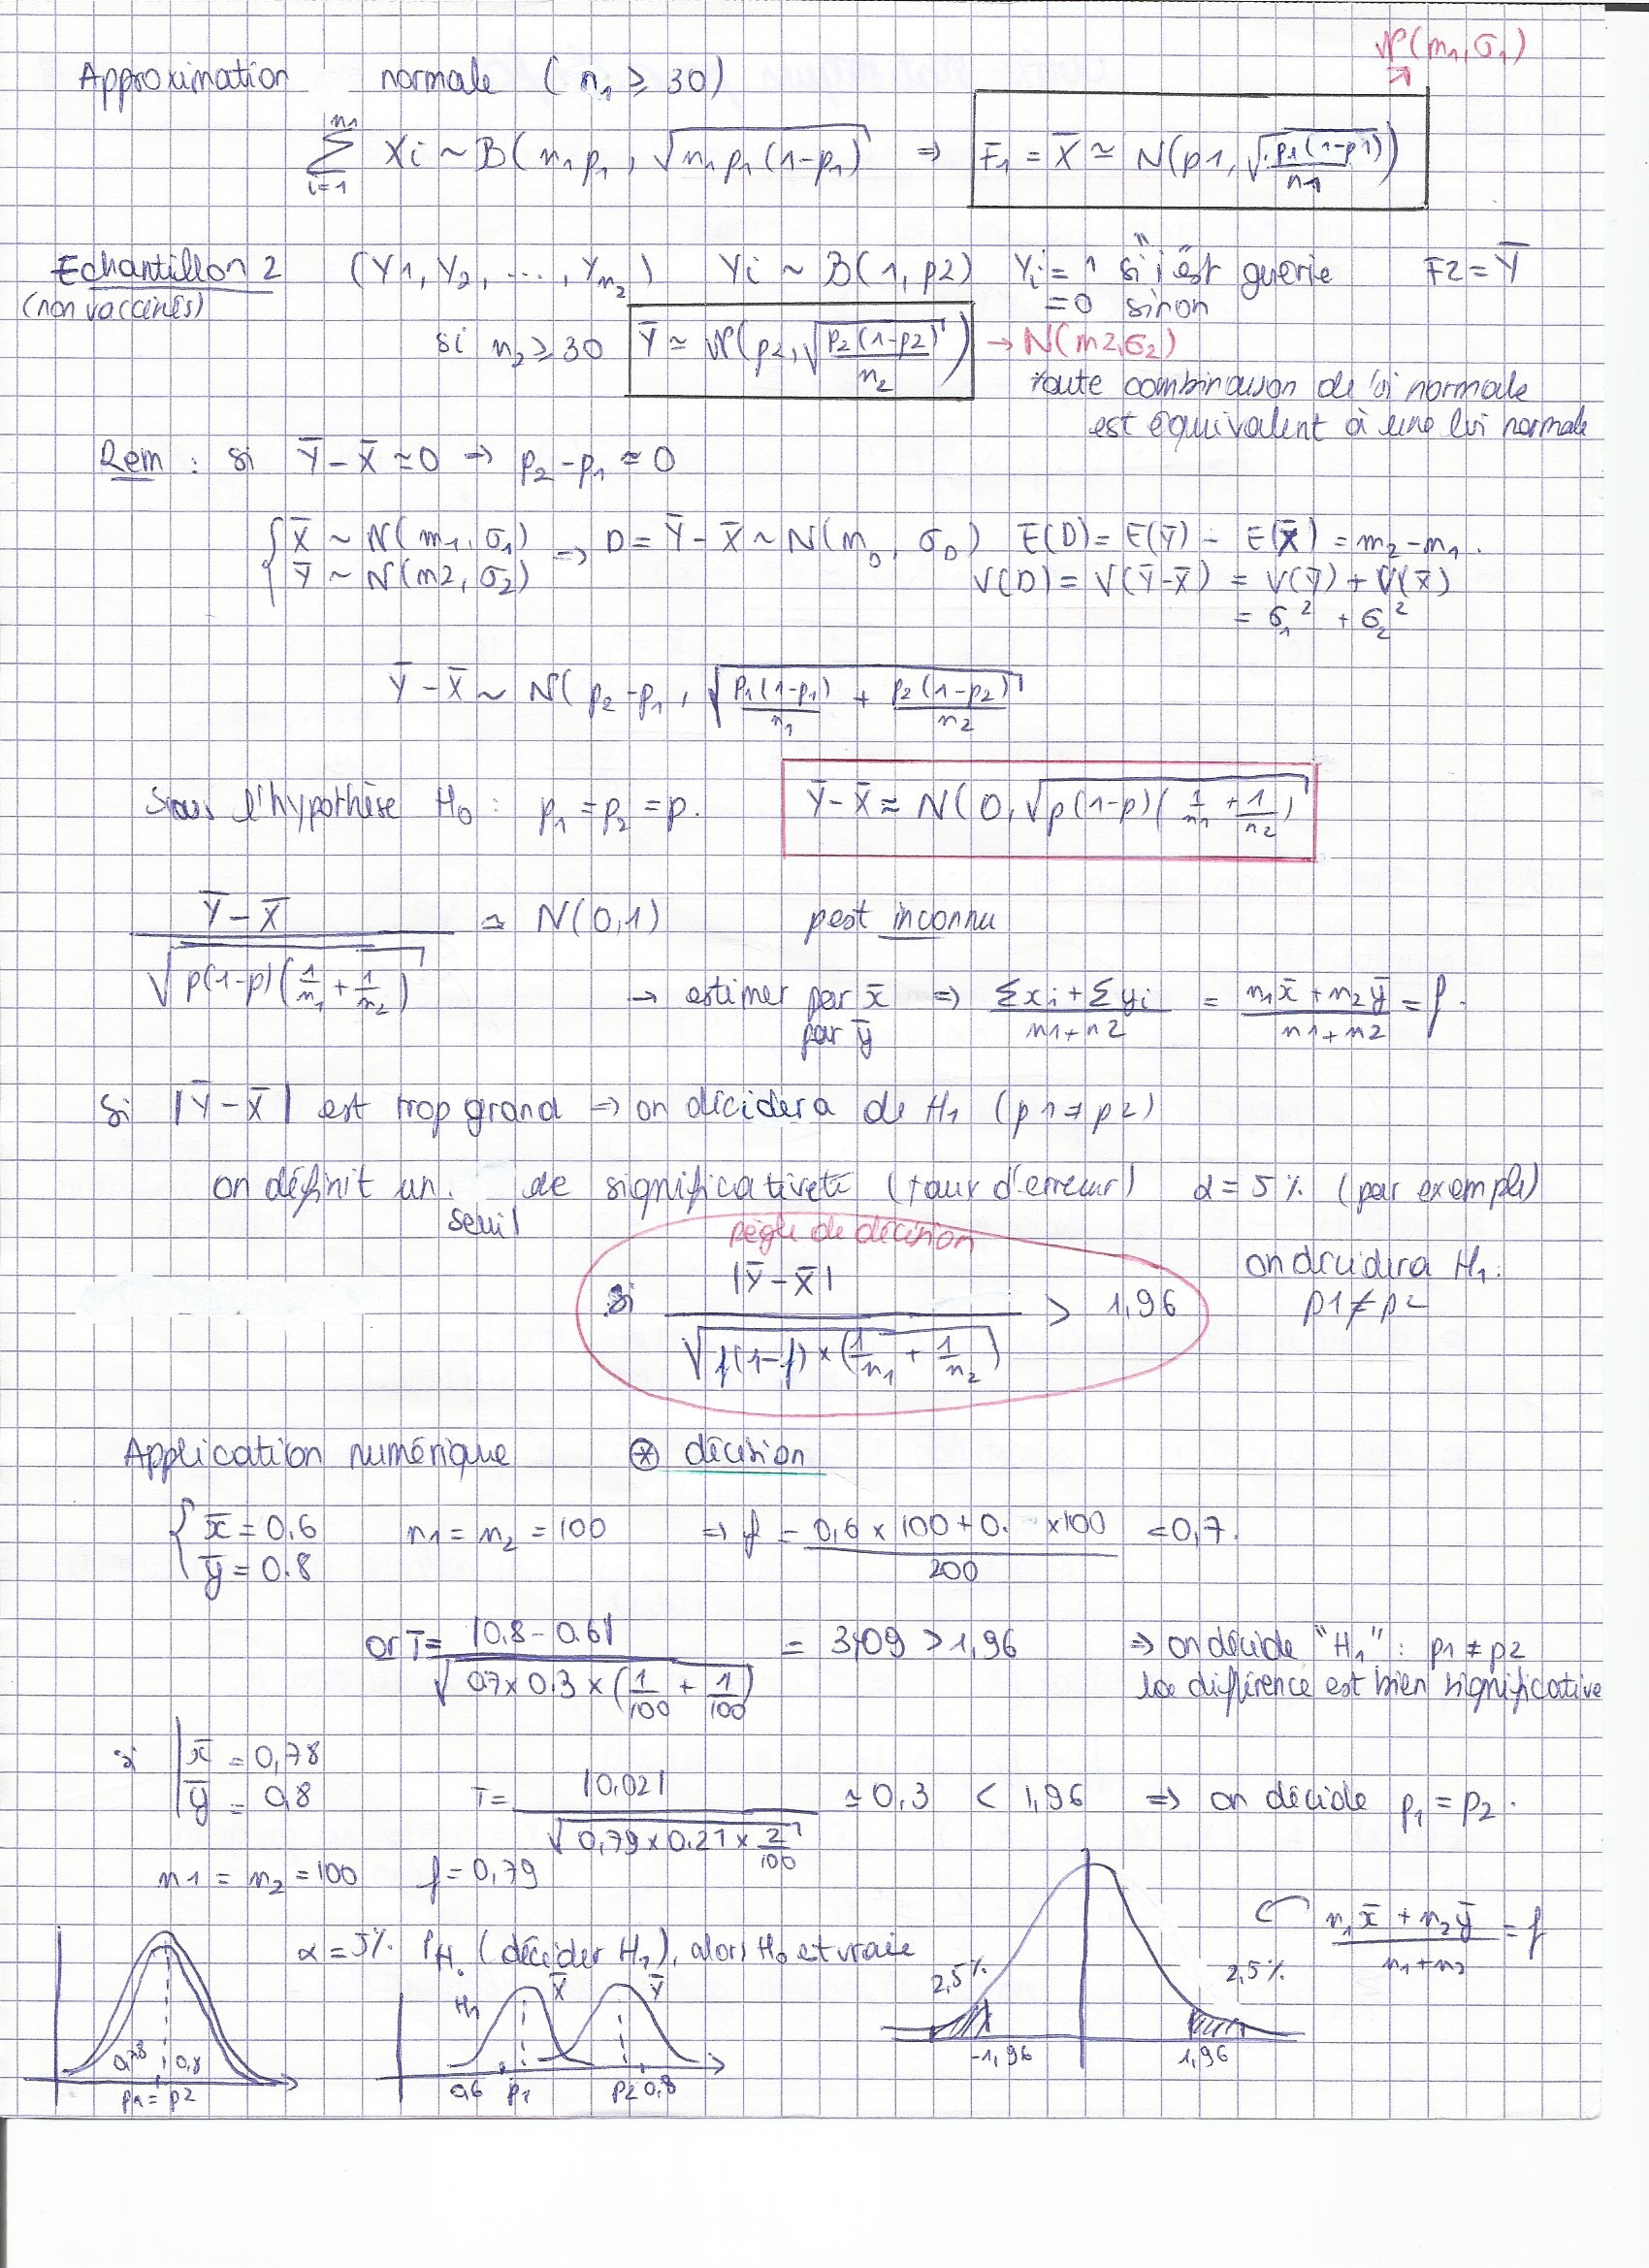 𝒩(m1, σ1)
Approximation normale ( n1 ⩾ 30)
∑_{i=1}^{n1} Xi ~ B( n1p1 , √(n1p1(1-p1)) ⇒ F1 = X̄ ≃ N(p1, √(p1(1-p1)/n1))
Echantillon 2 (Y1, Y2, ...., Yn2) Yi ~ B(1, p2) Yi = 1 si "i" est guerie F2 = Ȳ
(non vaccinés) = 0 sinon
si n2 ⩾ 30 Ȳ ≃ 𝒩(p2, √(p2(1-p2)/n2)) → N(m2, σ2)
toute combinaison de loi normale
est équivalent à une loi normale
Rem : si Ȳ - X̄ ≃ 0 → p2 - p1 ≈ 0
{ X̄ ~ N(m1, σ1) ⇒ D = Ȳ - X̄ ~ N(mD, σD) E(D) = E(Ȳ) - E(X̄) = m2 - m1.
Ȳ ~ N(m2, σ2) V(D) = V(Ȳ-X̄) = V(Ȳ) + V(X̄)
= σ1² + σ2²
Ȳ - X̄ ~ N( p2 - p1 , √(p1(1-p1)/n1 + p2(1-p2)/n2)
Sous l'hypothèse H0 : p1 = p2 = p. Ȳ - X̄ ≈ N(0, √(p(1-p)(1/n1 + 1/n2))
(Ȳ - X̄)/√(p(1-p)(1/n1 + 1/n2)) ≃ N(0,1) p est inconnu
→ estimer par x̄ ⇒ (∑xi + ∑yi)/(n1+n2) = (n1x̄ + n2ȳ)/(n1+n2) = f.
par ȳ
Si |Ȳ - X̄| est trop grand → on décidera de H1 (p1 ≠ p2)
on définit un seuil de significativeté (taux d'erreur) α = 5% (par exemple)
règle de décision
si |Ȳ - X̄|/√(f(1-f) × (1/n1 + 1/n2)) > 1,96 on décidera H1:
p1 ≠ p2
Application numérique ⊛ décision
{ x̄ = 0.6 n1 = n2 = 100 ⇒ f = (0,6 × 100 + 0. ×100)/200 = 0,7.
ȳ = 0.8
or T = |0.8 - 0.6|/√(0.7 × 0.3 × (1/100 + 1/100)) = 3,09 > 1,96 ⇒ on décide "H1" : p1 ≠ p2
la différence est bien significative
si x̄ = 0,78
ȳ = 0,8 T = |0.02|/√(0,79 × 0.21 × 2/100) ≃ 0,3 < 1,96 ⇒ on décide p1 = p2.
n1 = n2 = 100 f = 0,79
(n1x̄ + n2ȳ)/(n1+n2) = f
α = 5% PH0 (décider H1), alors H0 est vraie
2,5% 2,5%
H1 X̄ Ȳ
-1,96 1,96
0,78 0,8
p1 = p2
0,6 p1 p2 0,8